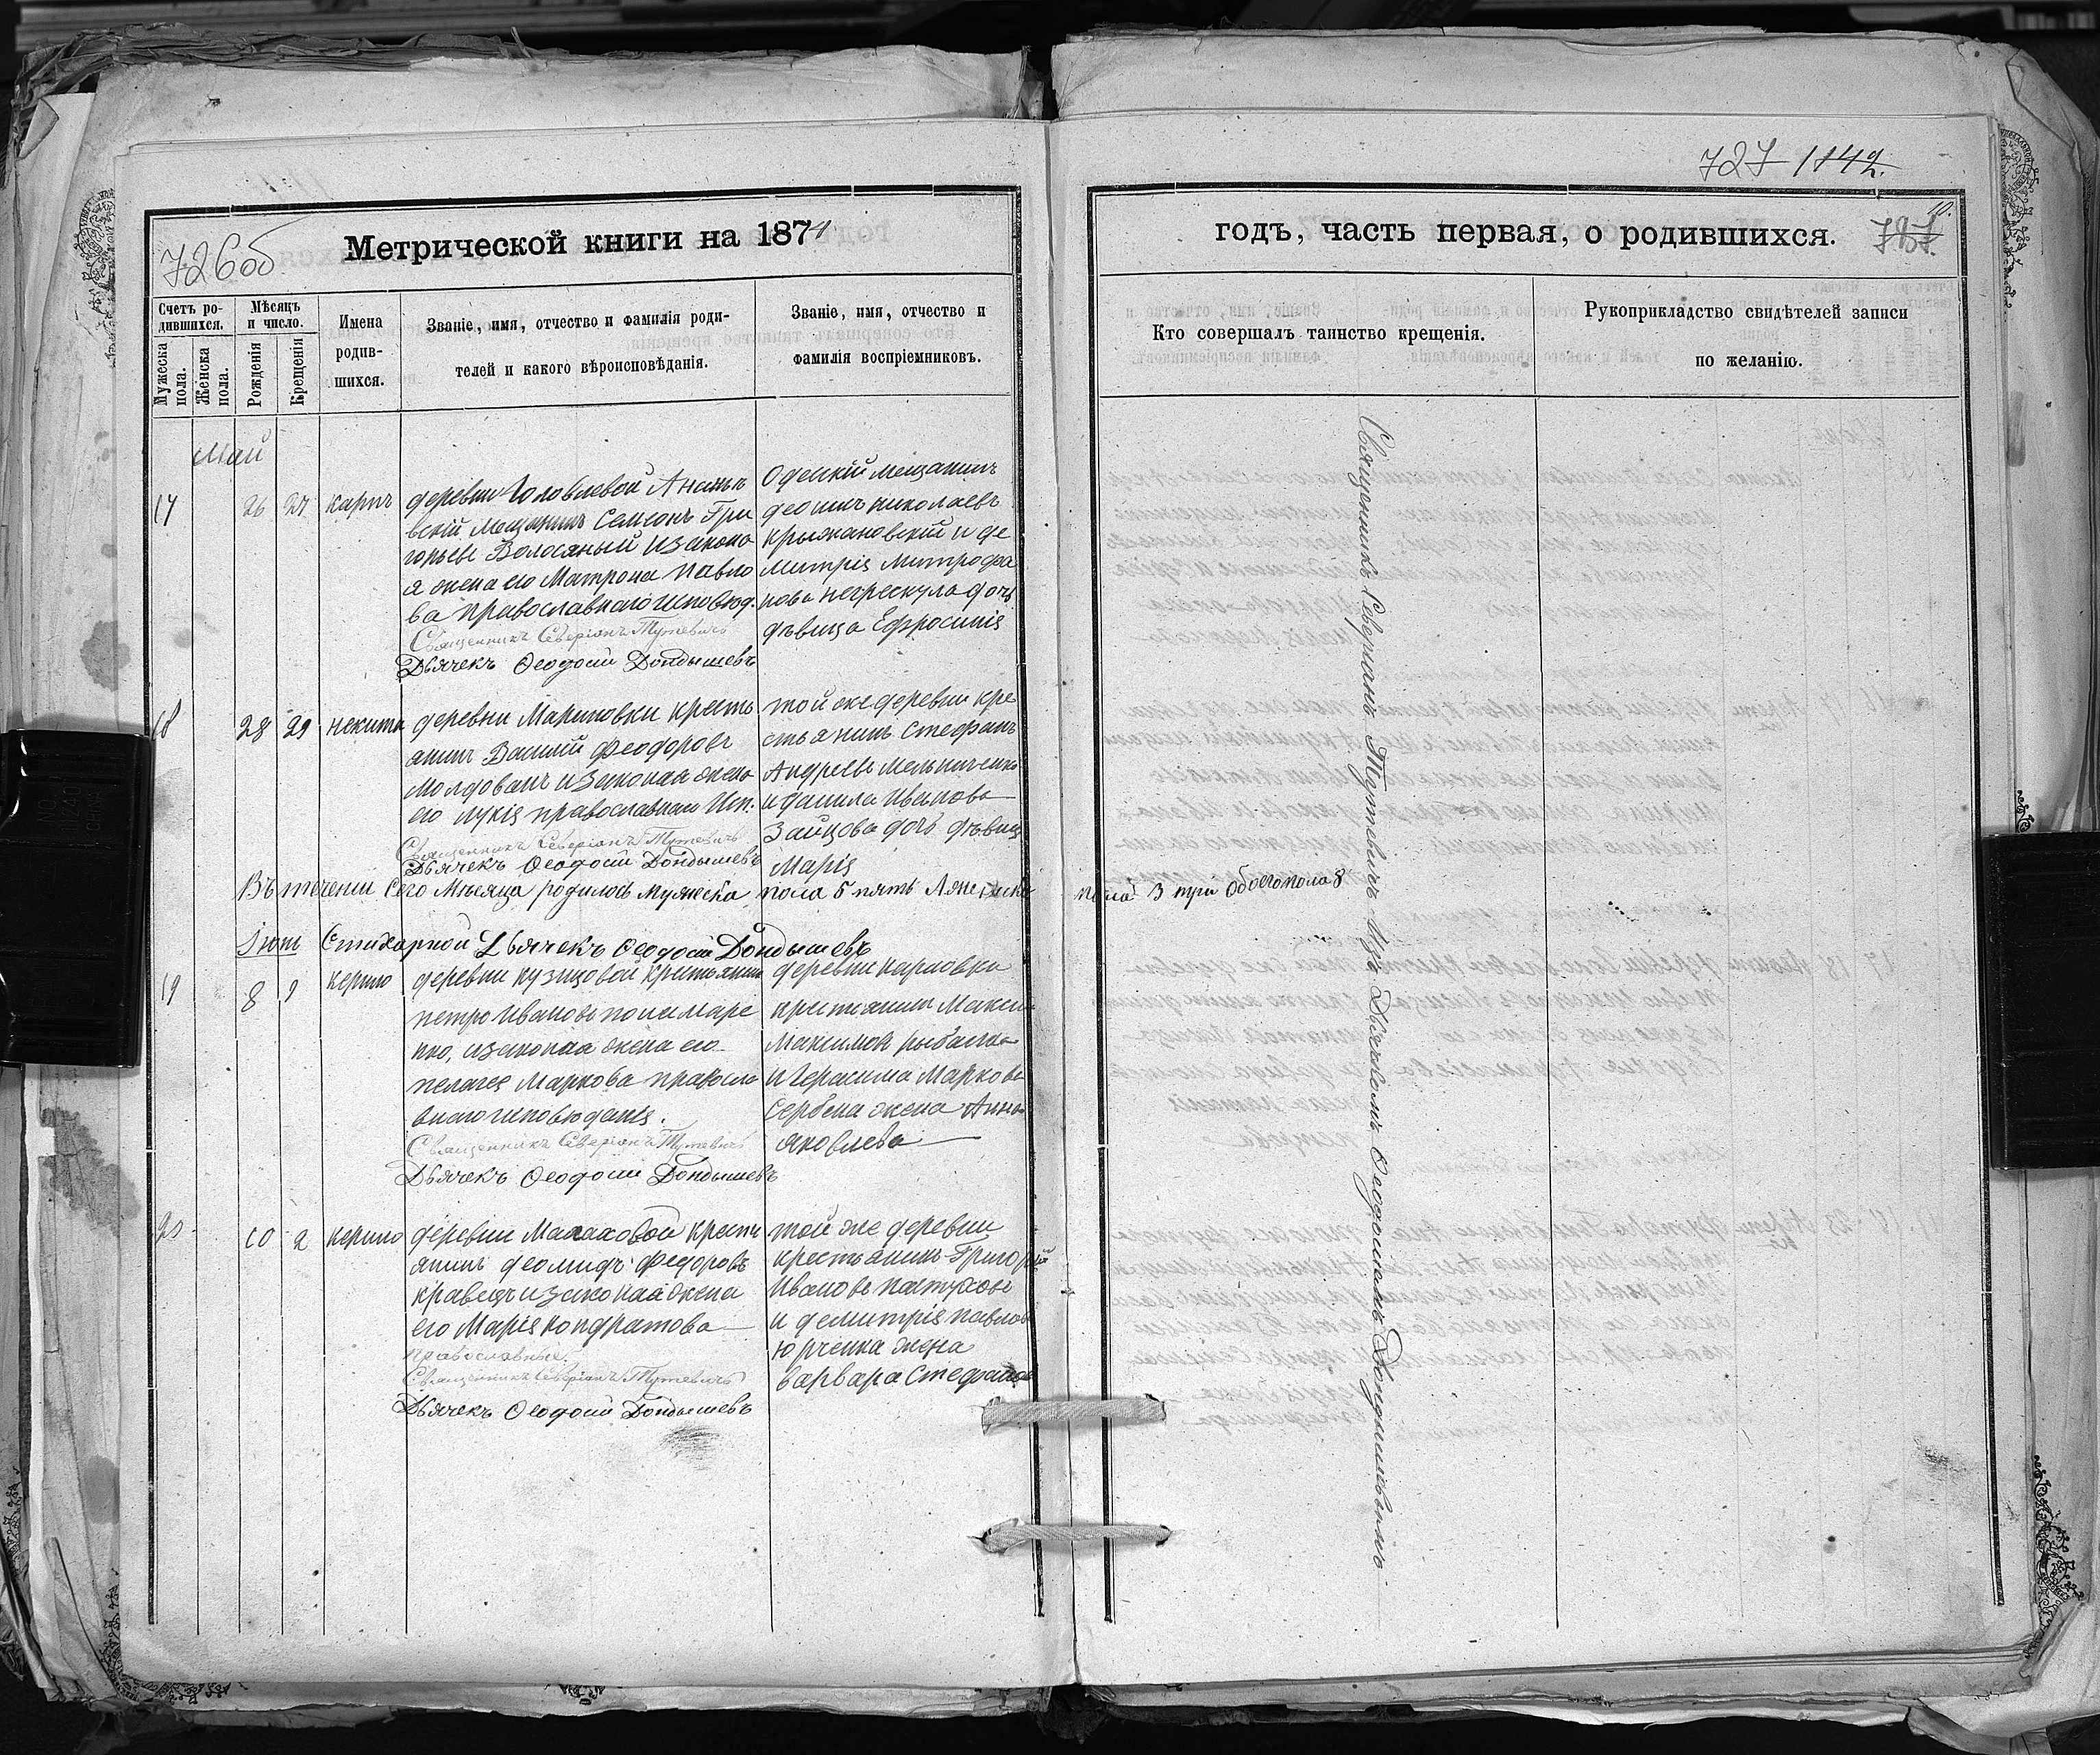 726об
Метрической книги на 1871
Счетъ ро-
дившихся.
Мужеска
пола.
Женска
пола.
Мѣсяцъ
и число.
Рожденія
Крещенія
Имена
родив-
шихся.
Званіе, имя, отчество и фамилія роди-
телей и какого вѣроисповѣданія.
Званіе, имя, отчество и
фамилія воспріемниковъ.
Май
17
26 27
карпъ
деревни Головлевой Ананье
вскій мещанинъ Семеонъ Гри
горьевъ Волосяный и законо
я жена его Матрона Павло
ва православнаго исповѣд.
Священникъ Северіанъ Тутевичъ
Дьячекъ Ѳеодосій Дондышевъ
Одескій мещанинъ
николаевъ
крыжановскій и де
митрія митрофа
нова негрескула дочь
дѣвица Ефросинія
18
28 29
некита
деревни Мариновки кресть
янинъ Василій феодоровъ
молдованъ и законая жена
его лукія православнаи исп.
Священникъ Северіанъ Тутевичъ
Дьячекъ Ѳеодосій Дондышевъ
той же деревни кре
стьянинъ стефанъ
Андреевъ мельниченко
и данила иванова
Зайцова дочь дѣвиц
Марія
Въ течении сего Месяца родилось мужеска пола 5 пять А женска
Стихарной Дьячекъ Ѳеодосій Дондышевъ
19
8 9
керило
деревни кузицовой крестянинъ
петро ивановъ
нко, изаконая жена его
пелагея маркова правосла
внаго исповѣданія.
Священникъ Северіанъ Тутевичъ
Дьячекъ Ѳеодосій Дондышевъ
деревни карповки
крестянинъ Макси
Максимов рыбалка
и Герасима Маркова
сербена жена Анна
яковлева
20
10
керило
деревни Малаховой крестя
янинъ деомидъ Федоровъ
кравецъ и законая жена
его Марія кондратова
православные.
Священникъ Северіанъ Тутевичъ
Дьячекъ Ѳеодосій Дондышевъ
той же деревни
крестьянинъ Григорій
ивановъ пастуховъ
и демитрія павлов
юрченка жена
варвара Стефанова
727 1142.
годъ, часть первая, о родившихся.
10.
Кто совершалъ таинство крещенія.
Рукоприкладство свидѣтелей записи
по желанію.
пола 3 три обоегопола 8
Священникъ Северіанъ Тутевичъ изъ Дьячкомъ Ѳеодосіемъ Дондышевымъ